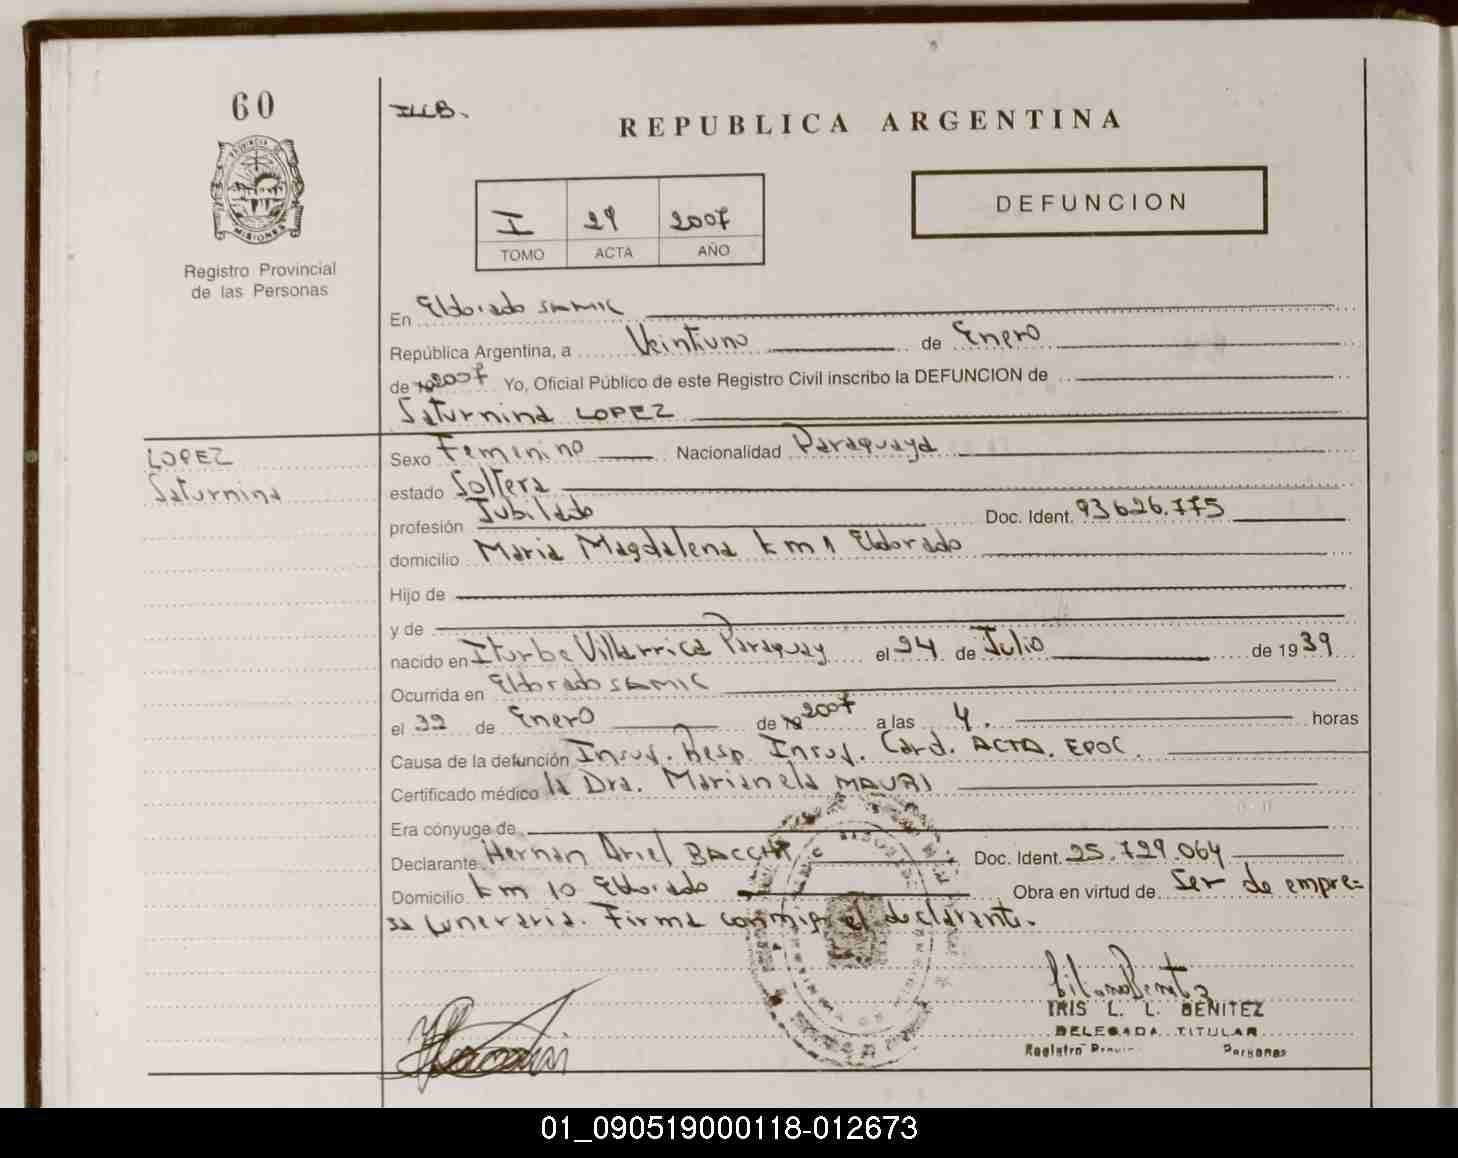 60
ILLB.
REPUBLICA ARGENTINA
PROVINCIA DE
MISIONES
Registro Provincial
de las Personas
I 29 2007
TOMO ACTA AÑO
DEFUNCION
En Eldorado SAMIC
República Argentina, a Veintiuno de Enero
de 2007 Yo, Oficial Público de este Registro Civil inscribo la DEFUNCION de
Saturnina LOPEZ
LOPEZ
Saturnina
Sexo Femenino Nacionalidad Paraguaya
estado Soltera
profesión Jubilado Doc. Ident. 93626.775
domicilio Maria Magdalena km 1 Eldorado
Hijo de
y de
nacido en Iturbe Villarrica Paraguay el 24 de Julio de 1939
Ocurrida en Eldorado SAMIC
el de Enero de 2007 a las 4. horas
Causa de la defunción Insuf. Resp. Insuf. Card. ACTA. EPOC.
Certificado médico la Dra. Marianela MAURI
Era cónyuge de
Declarante Hernan Ariel Doc. Ident. 25.729.064
Domicilio km 10 Eldorado Obra en virtud de Ser de empre=
sa funeraria. Firma conmigo el declarante.
IRIS L. L. BENITEZ
DELEGADA TITULAR
Registro Personas
01_090519000118-012673